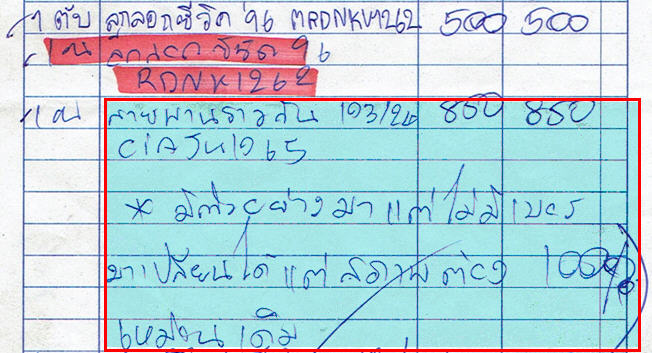 1 ตับ ลูกลอกซีวิค 96 MRDNKV1262 500 500
1 ลูกลอกซีวิค 96
RDNK1262
1 สายพานราวลิ้น 193/26 850 850
* มีตัวอย่างมา แต่ไม่มีเบอร์
มาเปลี่ยนได้ แต่สภาพต้อง 100%
เหมือนเดิม